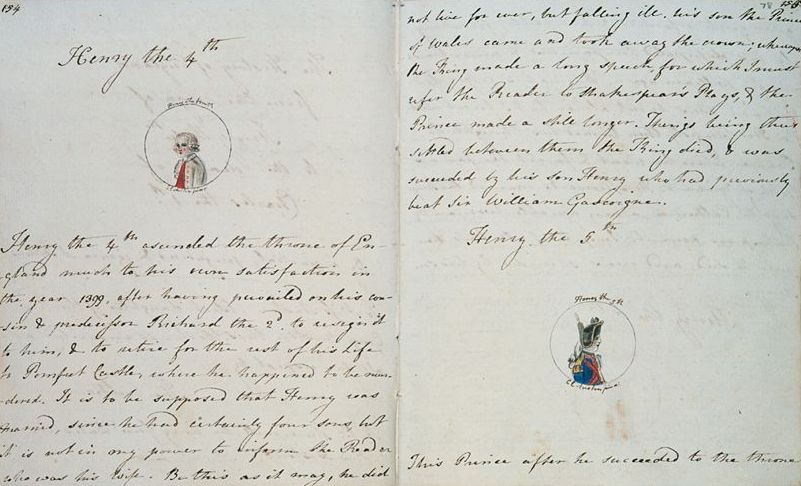 154
Henry the 4th
Henry the fourth
Henry the 4th ascended the throne of En-
gland much to his own satisfaction in
the year 1399, after having prevailed on his cou-
sin & predecessor Richard the 2d to resign it
to him, & to retire for the rest of his Life
to Pomfret Castle, where he happened to be mur-
dered. It is to be supposed that Henry was
married, since he had certainly four sons, but
it is not in my power to inform the Reader
who was his wife. Be this as it may, he did
155
78
not live for ever, but falling ill, his son the Prince
of Wales came and took away the crown; whereupon
the King made a long speech, for which I must
refer the Reader to Shakespear's Plays, & the
Prince made a still longer. Things being thus
settled between them the King died, & was
succeeded by his son Henry who had previously
beat Sir William Gascoigne.
Henry the 5th
Henry the 5th
C E Austen pinx
This Prince after he succeeded to the throne